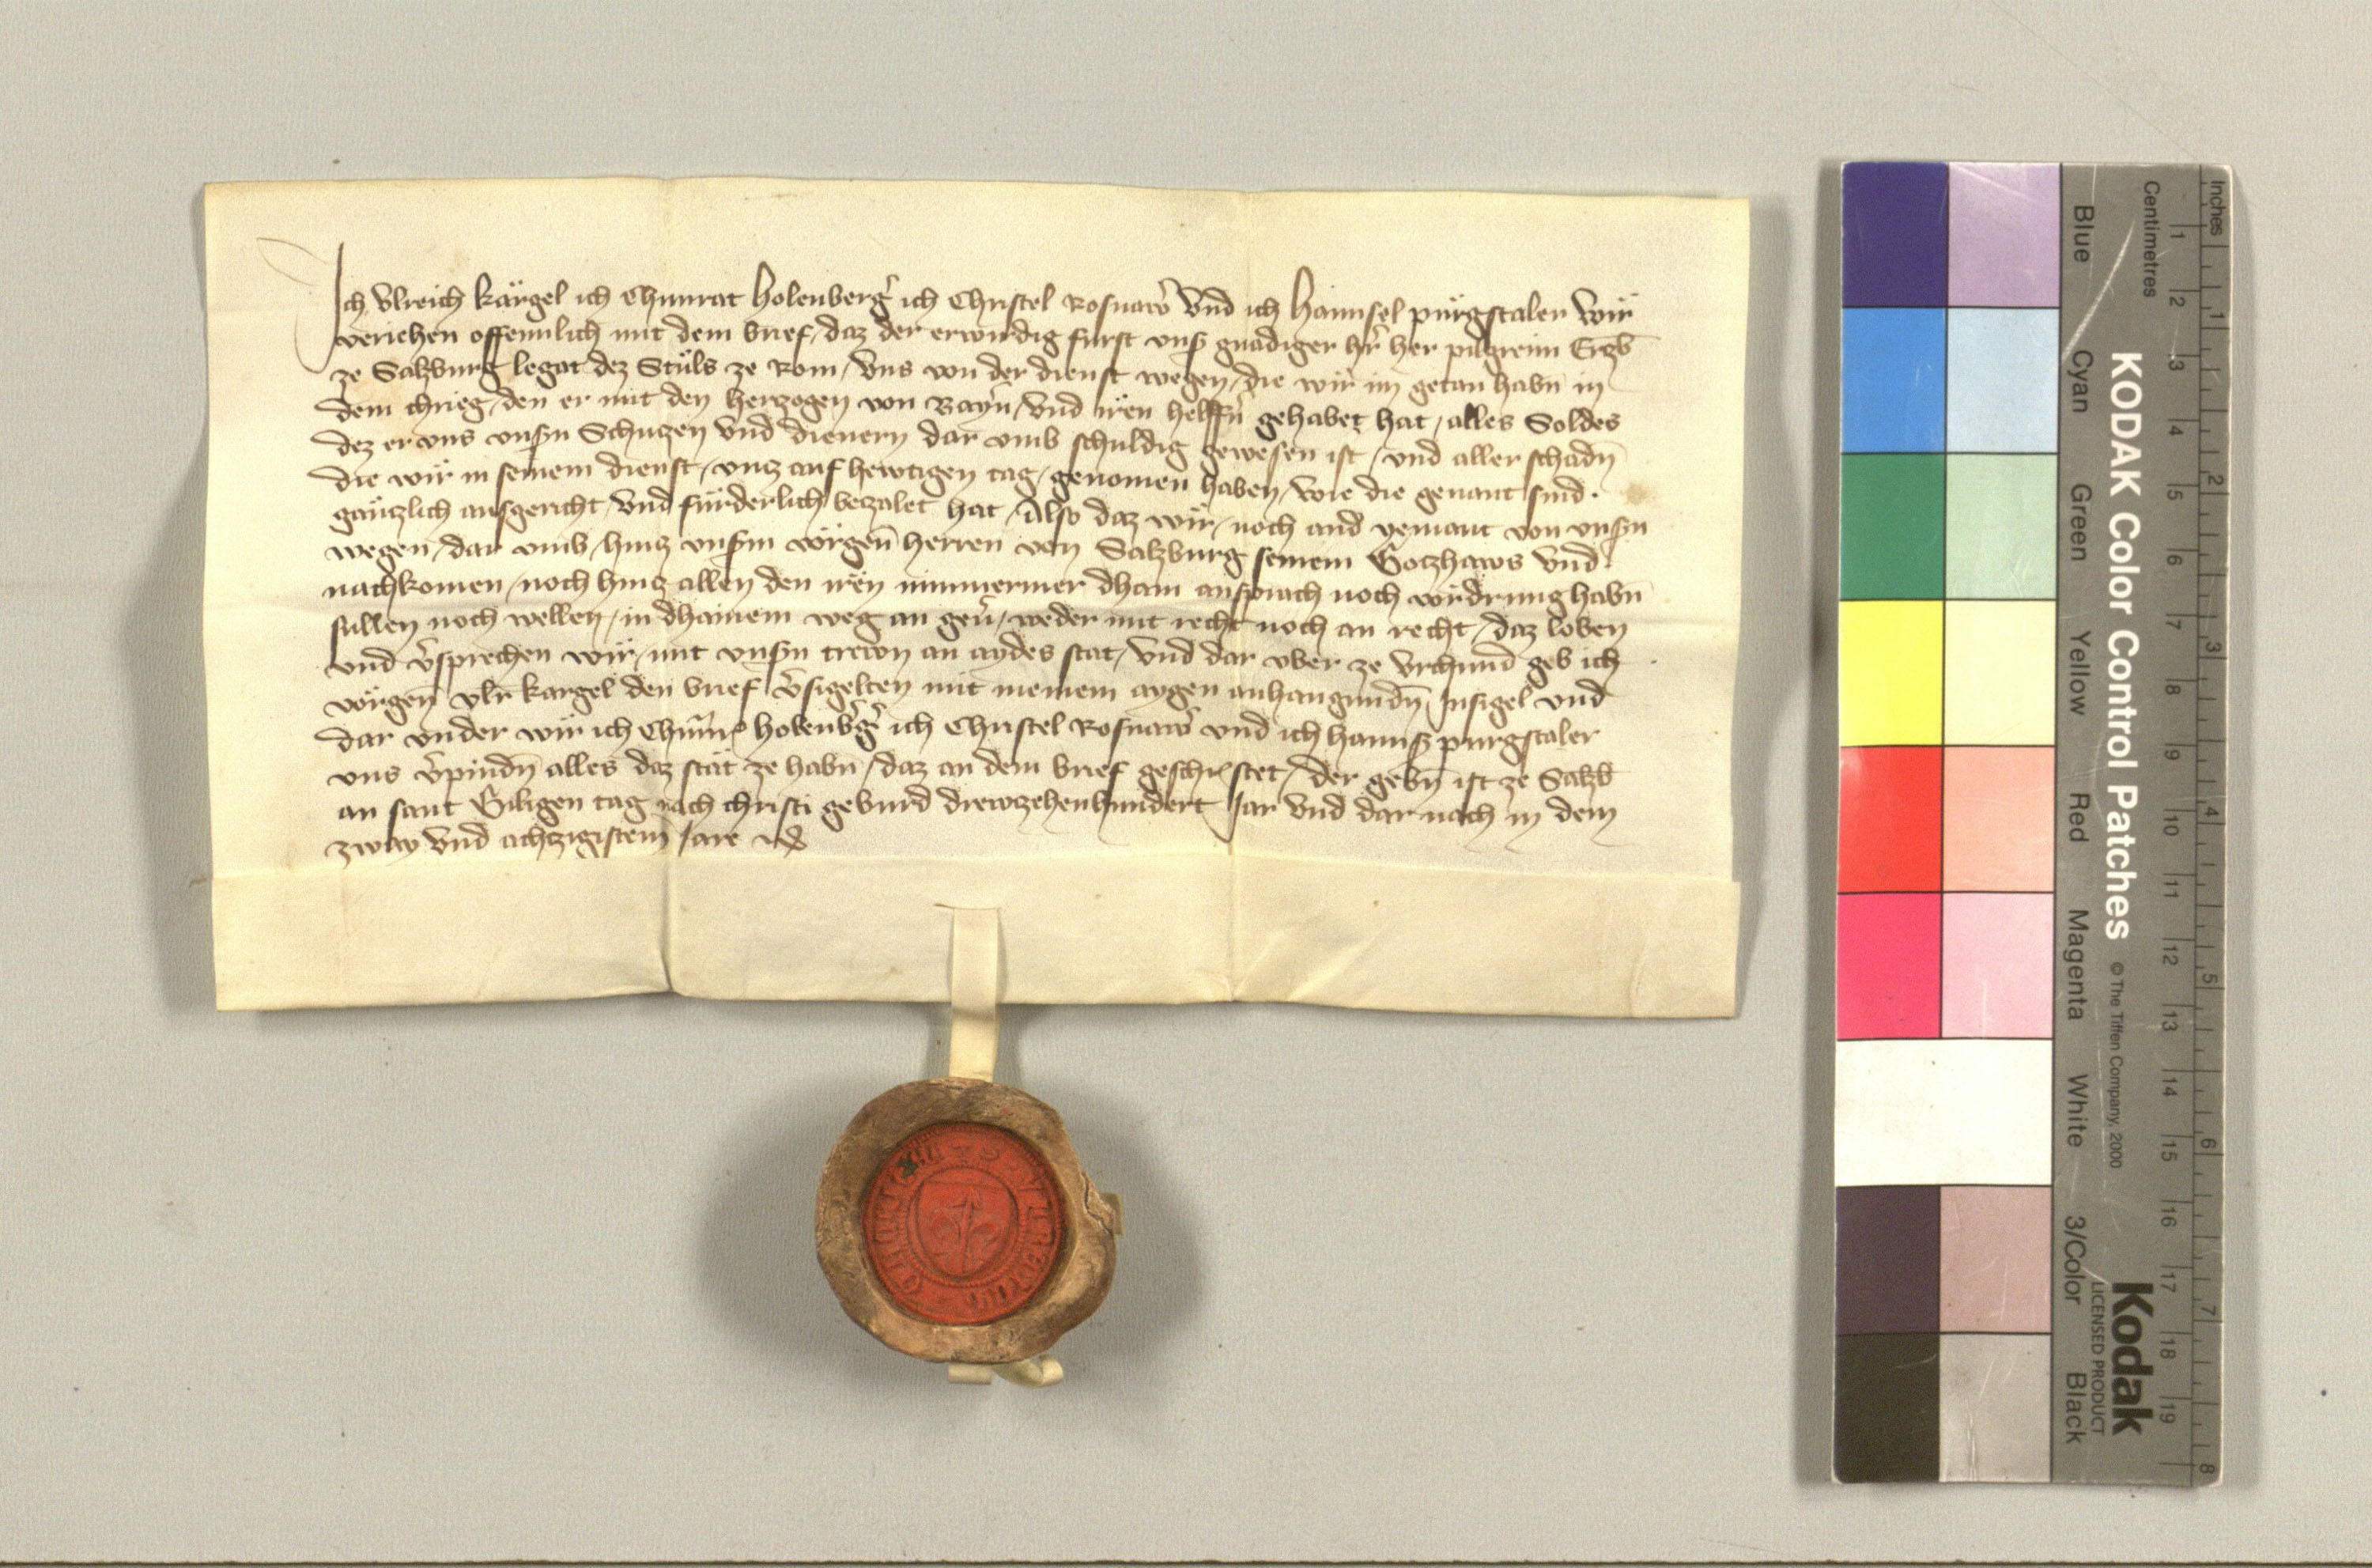 Ich Vlreich kärgel ich Chunrat Holenberg̉ ich Christel Rosnaẘ Vnd ich Hainnsel pürgstaler Wir
veriehen offennlich mit dem brief / daz der erwirdig fürst vnß gnädiger hr̉ her pilgreim Erczb̄
ze Salzburg legat dez Stůls ze Rom / Vns von der dienst wegen / die wir im getan habn̄ in
dem chrieg / den er mit den herczogen von Bayr̉n / Vnd iren helffn̉ gehabet hat / alles Soldes
dez er vns vnsn̉ Schuczen Vnd dienern dar vmb schuldig gewesen ist / vnd aller schadn̄
die wir in seinem dienst / vncz auf hewtigen tag / genomen haben / wie die genant sind .
gänczlich ausgericht / Vnd fürderlich beczalet hat / Also daz wir / noch and̉ yemant von vnsn̉
wegen / dar vmb / hincz vnsm̉ vorgen̄ herren von Salzburg seinem Goczhaws Vnd
nachkomen / noch hincz allen den iren nimmermer dhain ansprach noch vordrung habn̄
sullen noch wellen / in dhainem weg an geu̓ / weder mit recht noch an recht / daz loben
vnd v̉sprechen wir / mit vnsn̉ trewn an aydes stat / Vnd dar vber ze Vrchund geb ich
vorgen̄ Vlr̉ kargel den brief v̉sigelten mit meinem aygen anhangundn̄ Insigel vnd
dar vnder wir ich Chunr̉ Holenb̉g̉ ich Christel Rosnaẘ vnd ich Hannß purgstaler
vns v̉pindn̄ alles daz stät ze habn̄ / daz an dem brief geschr̉ stet / der gebn̄ ist ze Salzb̄
an sant Giligen tag nach christi geburd drewczehenhundert Jar Vnd dar nach in dem
zway Vnd achczigistem Jare
KODAK Color Control Patches © The Tiffen Company, 2000
Kodak
LICENSED PRODUCT
Blue Cyan Green Yellow Red Magenta White 3/Color Black
Inches 1 2 3 4 5 6 7 8
Centimetres 1 2 3 4 5 6 7 8 9 10 11 12 13 14 15 16 17 18 19